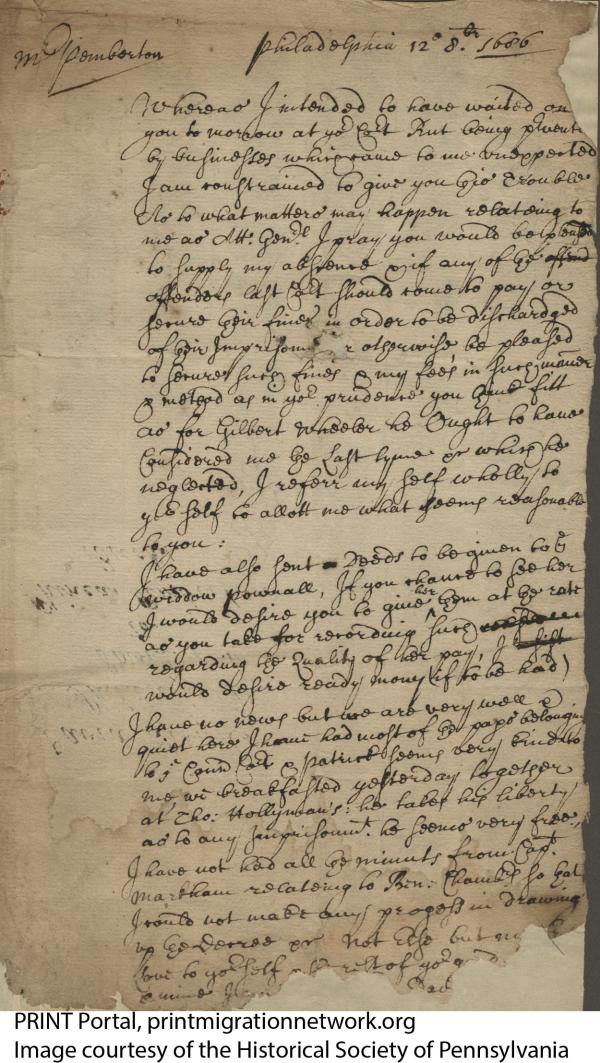 Mr Pemberton
Philadelphia 12o 8br 1686
Whereas I intended to have waited on
you to morrow at ye Cort But being prvent
by businesses which came to me unexpected
I am constrained to give you this Trouble
As to what matters may happen relateing to
me as Att: Genll I pray you would be pleased
to supply my absence & if any of the offend
offenders last Cort should come to pay or
secure their fines in order to be dischardged
of their Imprisonm r otherwise be pleased
to secure such fines & my fees in such manner
& metead as in yor prudence you think fitt
as for Gilbert Wheeler he Ought to have
Considered me the Last tyme or which he
neglected, I referr my self wholly to
yor self to allott me what seems reasonable
to you:
I have also sent Deeds to be given to ye
Widdow pownall, If you chance to see her
I would desire you to give her them at the rate
as you take for recording such
regarding the Quality of her pay, I shift
would desire ready mony (if to be had)
I have no news but we are very well &
quiet here I have had most of the paprs belonging
to ye Coun Cort & Patrick seems very kind to
me we breakfasted yesterday together
at Tho: Hollymans: he takes his liberty
as to any Imprisonmt. he seems very free,
I have not had all the minuts from Capt.
Markham relateing to Ben: Chambrs so that
I could not make any progess in drawing
up the Decree pr Not Else but my
Love to yor self & the rest of yor good
& mine I
PRINT Portal, printmigrationnetwork.org
Image courtesy of the Historical Society of Pennsylvania